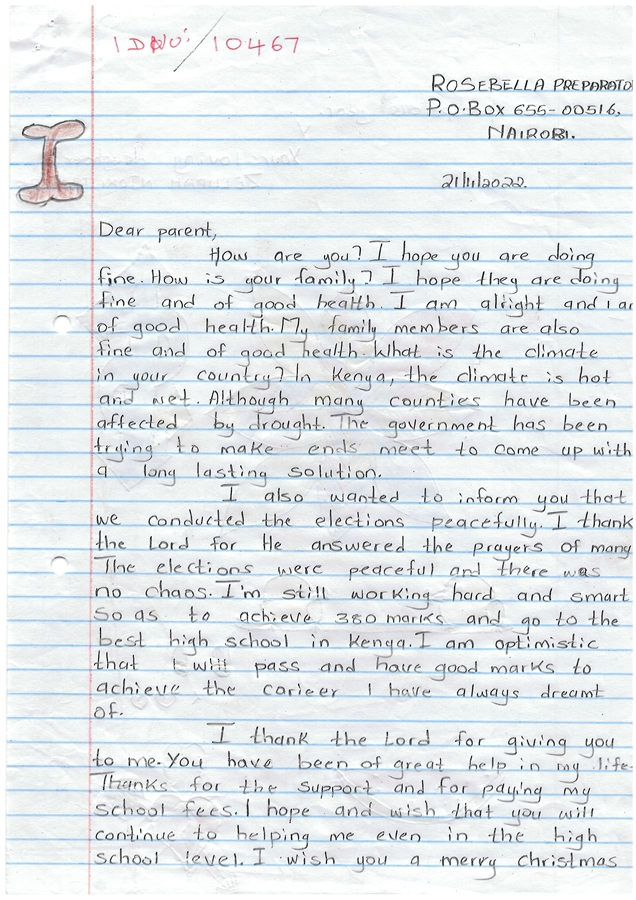 ID NO: / 10467
ROSEBELLA PREPARATO
P.O.BOX 655-00516,
NAIROBI.
21/11/2022.
I
Dear parent,
How are you? I hope you are doing
fine. How is your family? I hope they are doing
fine and of good health. I am alright and I a
of good health. My family members are also
fine and of good health. What is the climate
in your country? In Kenya, the climate is hot
and wet. Although many counties have been
affected by drought. The government has been
trying to make ends meet to come up with
a long lasting solution.
I also wanted to inform you that
we conducted the elections peacefully. I thank
the Lord for He answered the prayers of many.
The elections were peaceful and there was
no chaos. I'm still working hard and smart
so as to achieve 380 marks and go to the
best high school in Kenya. I am optimistic
that I will pass and have good marks to
achieve the carieer I have always dreamt
of.
I thank the Lord for giving you
to me. You have been of great help in my life.
Thanks for the support and for paying my
school fees. I hope and wish that you will
continue to helping me even in the high
school level. I wish you a merry christmas